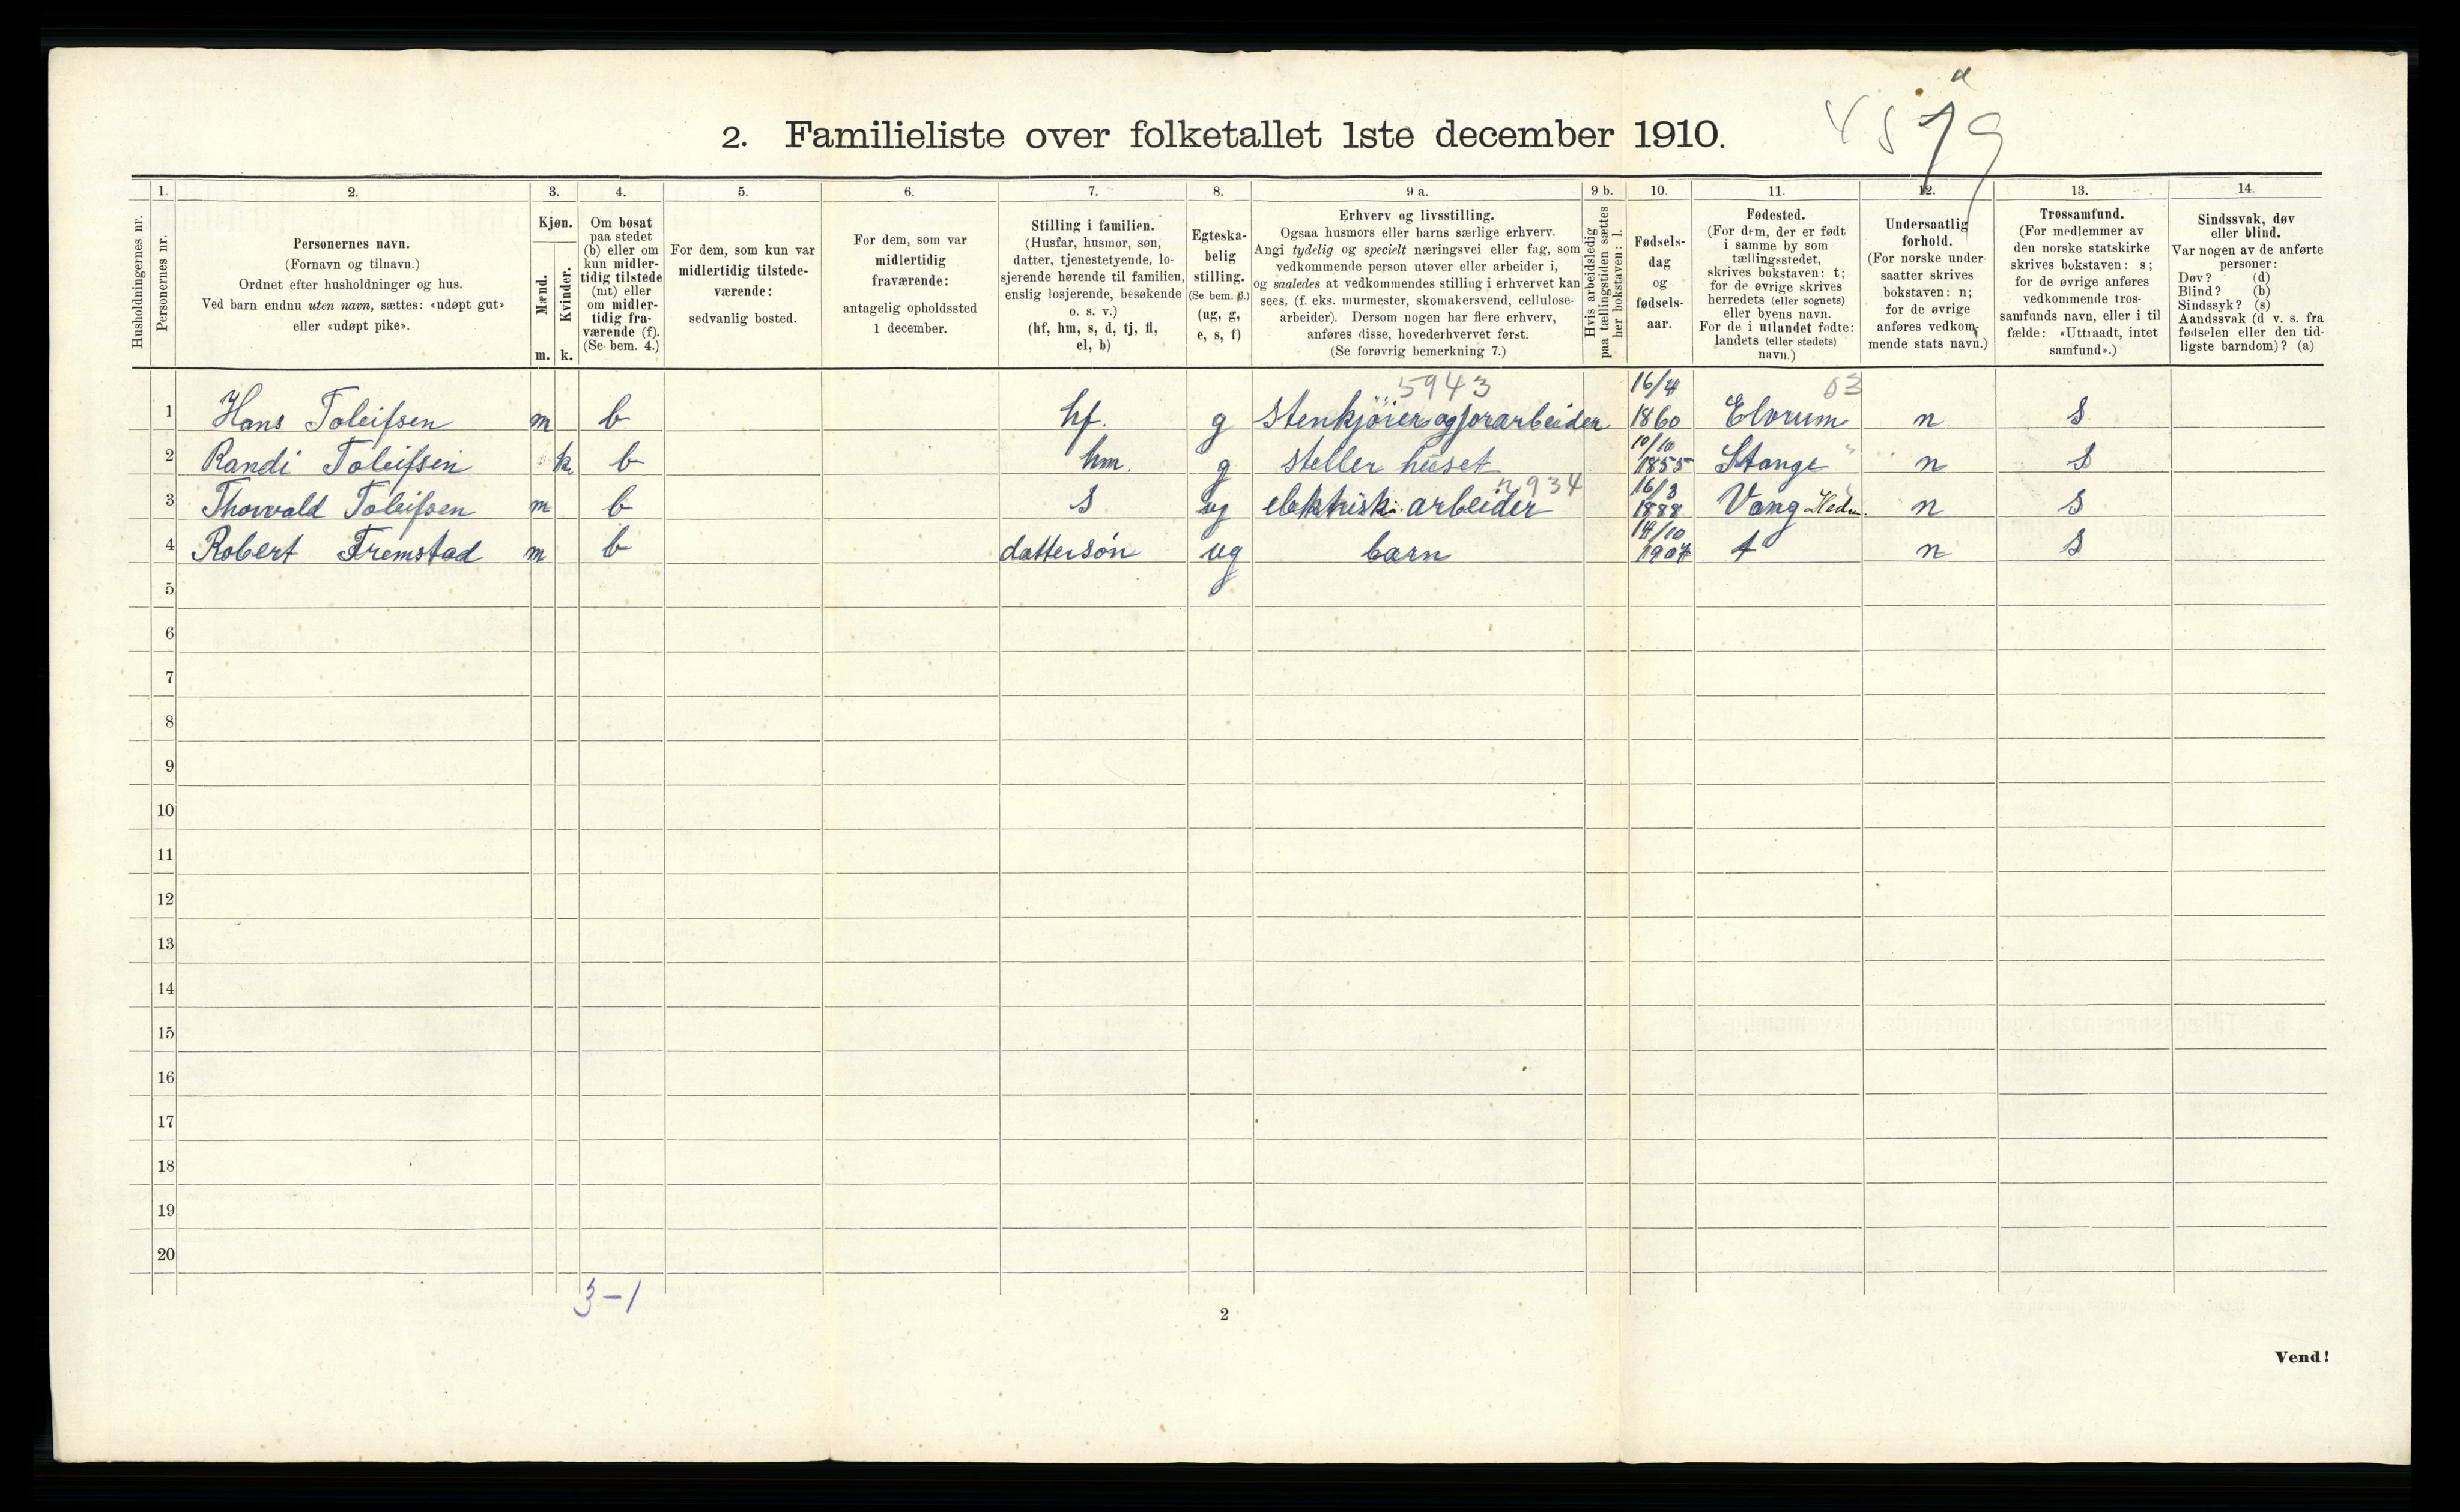 a
4579
2. Familieliste over folketallet 1ste december 1910.
1. 2. 3. 4. 5. 6. 7. 8. 9 a. 9 b. 10. 11. 12. 13. 14.
Husholdningernes nr.
Personernes nr.
Personernes navn.
(Fornavn og tilnavn.)
Ordnet efter husholdninger og hus.
Ved barn endnu uten navn, sættes: «udøpt gut»
eller «udøpt pike».
Kjøn.
Mænd.
Kvinder.
m. k.
Om bosat
paa stedet
(b) eller om
kun midler-
tidig tilstede
(mt) eller
om midler-
tidig fra-
værende (f).
(Se bem. 4.)
For dem, som kun var
midlertidig tilstede-
værende:
sedvanlig bosted.
For dem, som var
midlertidig
fraværende:
antagelig opholdssted
1 december.
Stilling i familien.
(Husfar, husmor, søn,
datter, tjenestetyende, lo-
sjerende hørende til familien,
enslig losjerende, besøkende
o. s. v.)
(hf, hm, s, d, tj, fl,
el, b)
Egteska-
belig
stilling.
(Se bem. 6.)
(ug, g,
e, s, f)
Erhverv og livsstilling.
Ogsaa husmors eller barns særlige erhverv.
Angi tydelig og specielt næringsvei eller fag, som
vedkommende person utøver eller arbeider i,
og saaledes at vedkommendes stilling i erhvervet kan
sees, (f. eks. murmester, skomakersvend, cellulose-
arbeider). Dersom nogen har flere erhverv,
anføres disse, hovederhvervet først.
(Se forøvrig bemerkning 7.)
Hvis arbeidsledig
paa tællingstiden sættes
her bokstaven: l.
Fødsels-
dag
og
fødsels-
aar.
Fødested.
(For dem, der er født
i samme by som
tællingsstedet,
skrives bokstaven: t;
for de øvrige skrives
herredets (eller sognets)
eller byens navn.
For de i utlandet fødte:
landets (eller stedets)
navn.)
Undersaatlig
forhold.
(For norske under-
saatter skrives
bokstaven: n;
for de øvrige
anføres vedkom-
mende stats navn.)
Trossamfund.
(For medlemmer av
den norske statskirke
skrives bokstaven: s;
for de øvrige anføres
vedkommende tros-
samfunds navn, eller i til-
fælde: «Uttraadt, intet
samfund».)
Sindssvak, døv
eller blind.
Var nogen av de anførte
personer:
Døv? (d)
Blind? (b)
Sindssyk? (s)
Aandssvak (d. v. s. fra
fødselen eller den tid-
ligste barndom)? (a)
5943 16/4 03
1 Hans Toleifsen m b hf. g Stenkjører og jorarbeider 1860 Elvrum n S
10/10
2 Randi Toleifsen k b hm. g steller huset 1855 Stange " n S
n934 16/3
3 Thorvald Toleifsen m b S ug elektrisk. arbeider 1888 Vang Hedm. n S
14/10
4 Robert Fremstad m b dattersøn ug barn 1907 t n S
5
6
7
8
9
10
11
12
13
14
15
16
17
18
19
20
3-1
2
Vend!